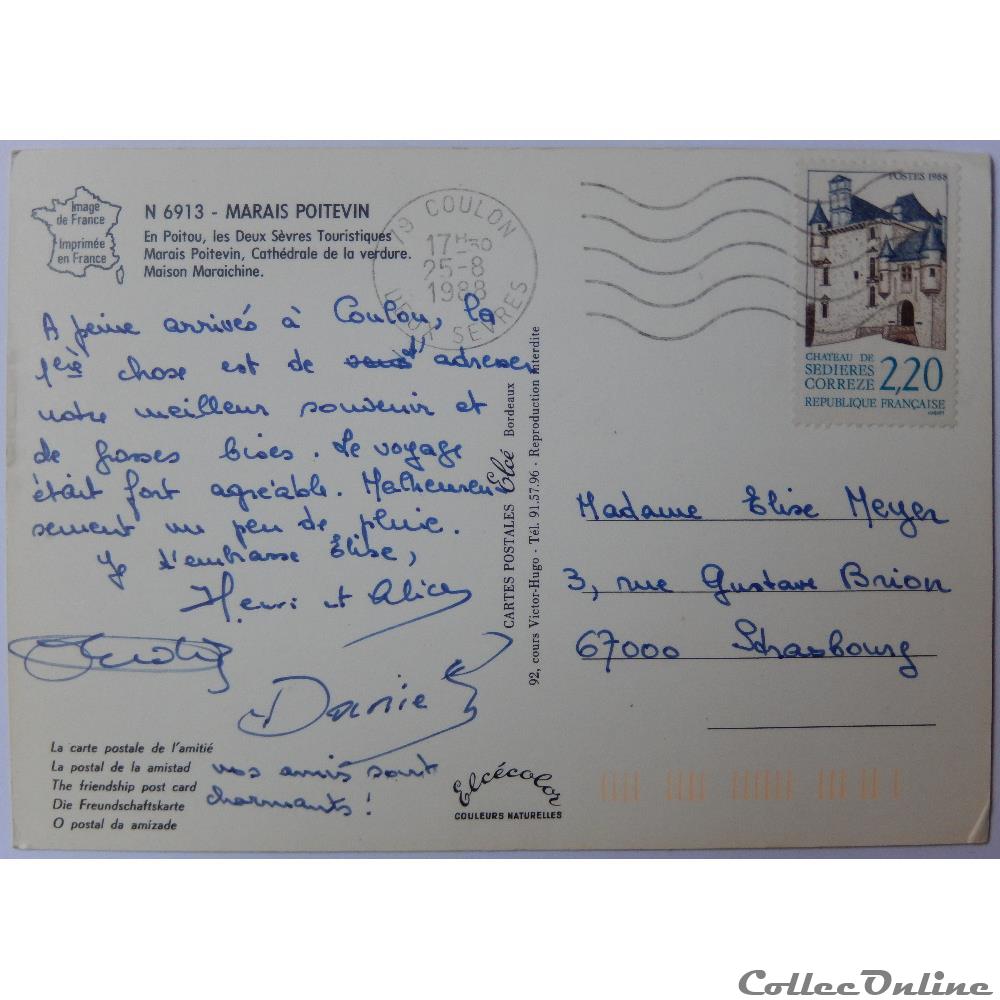 Image
de France
Imprimée
en France
N 6913 - MARAIS POITEVIN
En Poitou, les Deux Sèvres Touristiques
Marais Poitevin, Cathédrale de la verdure.
Maison Maraichine.
79 COULON
17H30
25-8
1988
DEUX SEVRES
POSTES 1988
CHATEAU DE
SEDIERES
CORREZE 2,20
REPUBLIQUE FRANÇAISE
A peine arrivés à Coulon, la
1ère chose est de t'adresser
notre meilleur souvenir et
de grosses bises. Le voyage
était fort agréable. Malheureu
sement un peu de pluie.
Je t'embrasse Elise,
Henri et Alice
Daniel
vos amis sont
charmants !
La carte postale de l'amitié
La postal de la amistad
The friendship post card
Die Freundschaftskarte
O postal da amizade
CARTES POSTALES Elcé Bordeaux
92, cours Victor-Hugo - Tél. 91.57.96 - Reproduction interdite
Elcécolor
COULEURS NATURELLES
Madame Elise Meyer
3, rue Gustave Brion
67000 Strasbourg
CollecOnline